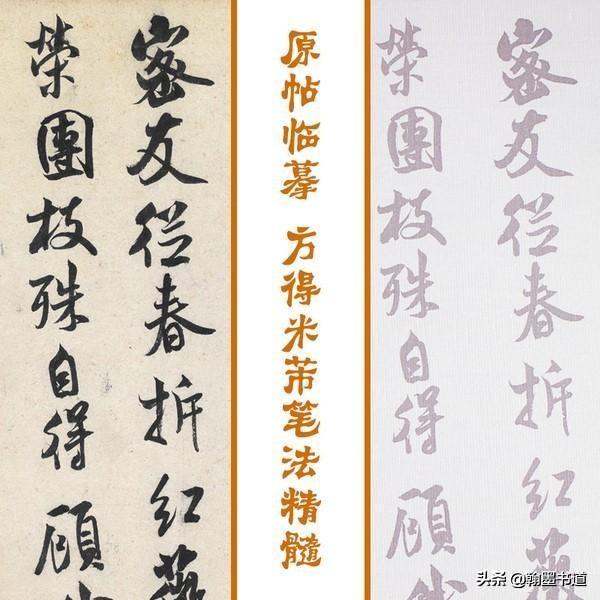 密友從春拆紅薇
榮團枝殊自得顧
原帖临摹 方得米芾笔法精髓
密友從春拆紅薇
榮團枝殊自得顧
头条 @翰墨书道